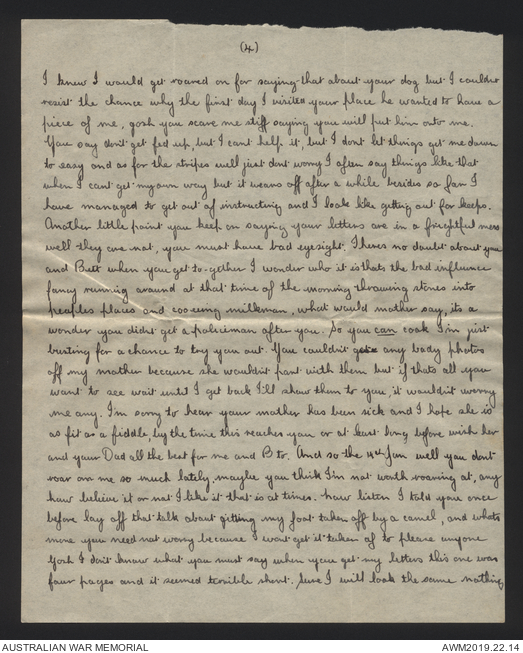 (4)
I knew I would get roared on for saying that about your dog but I couldn't
resist the chance why the first day I visited your place he wanted to have a
piece of me, gosh you scare me stiff saying you will put him onto me.
You say don't get fed up, but I can't help it, but I don't let things get me down
to easy and as for the stripes well just dont worry I often say things like that
when I cant get my own way but it wears off after a while besides so far I
have managed to get out of instructing and I look like getting out for keeps.
Another little point you keep on saying your letters are in a frightful mess
well they are not, you must have bad eyesight. Theres no doubt about you
and Bett when you get to-gether I wonder who it is thats the bad influence
fancy running around at that time of the morning throwing stones into
peoples places and coo-eeing milkman, what would mother say, its a
wonder you didn't get a policeman after you. So you can cook I'm just
busting for a chance to try you out. You couldn't get any baby photos
off my mother because she wouldn't part with them but if thats all you
want to see wait until I get back I'll show them to you, it wouldn't worry
me any. I'm sorry to hear your mother has been sick and I hope she is
as fit as a fiddle, by the time this reaches you or at least long before wish her
and your Dad all the best for me and B to. And so the 14th Jan well you don't
roar on me so much lately, maybe you think I'm not worth roaring at, any
how believe it or not I like it that is at times. Now listen I told you once
before lay off that talk about getting my foot taken off by a camel, and whats
more you need not worry because I wont get it taken of to please anyone
Gosh I don't know what you must say when you get my letters this one was
four pages and it seemed terrible short. Sure I will look the same nothing
AUSTRALIAN WAR MEMORIAL
AWM2019.22.14